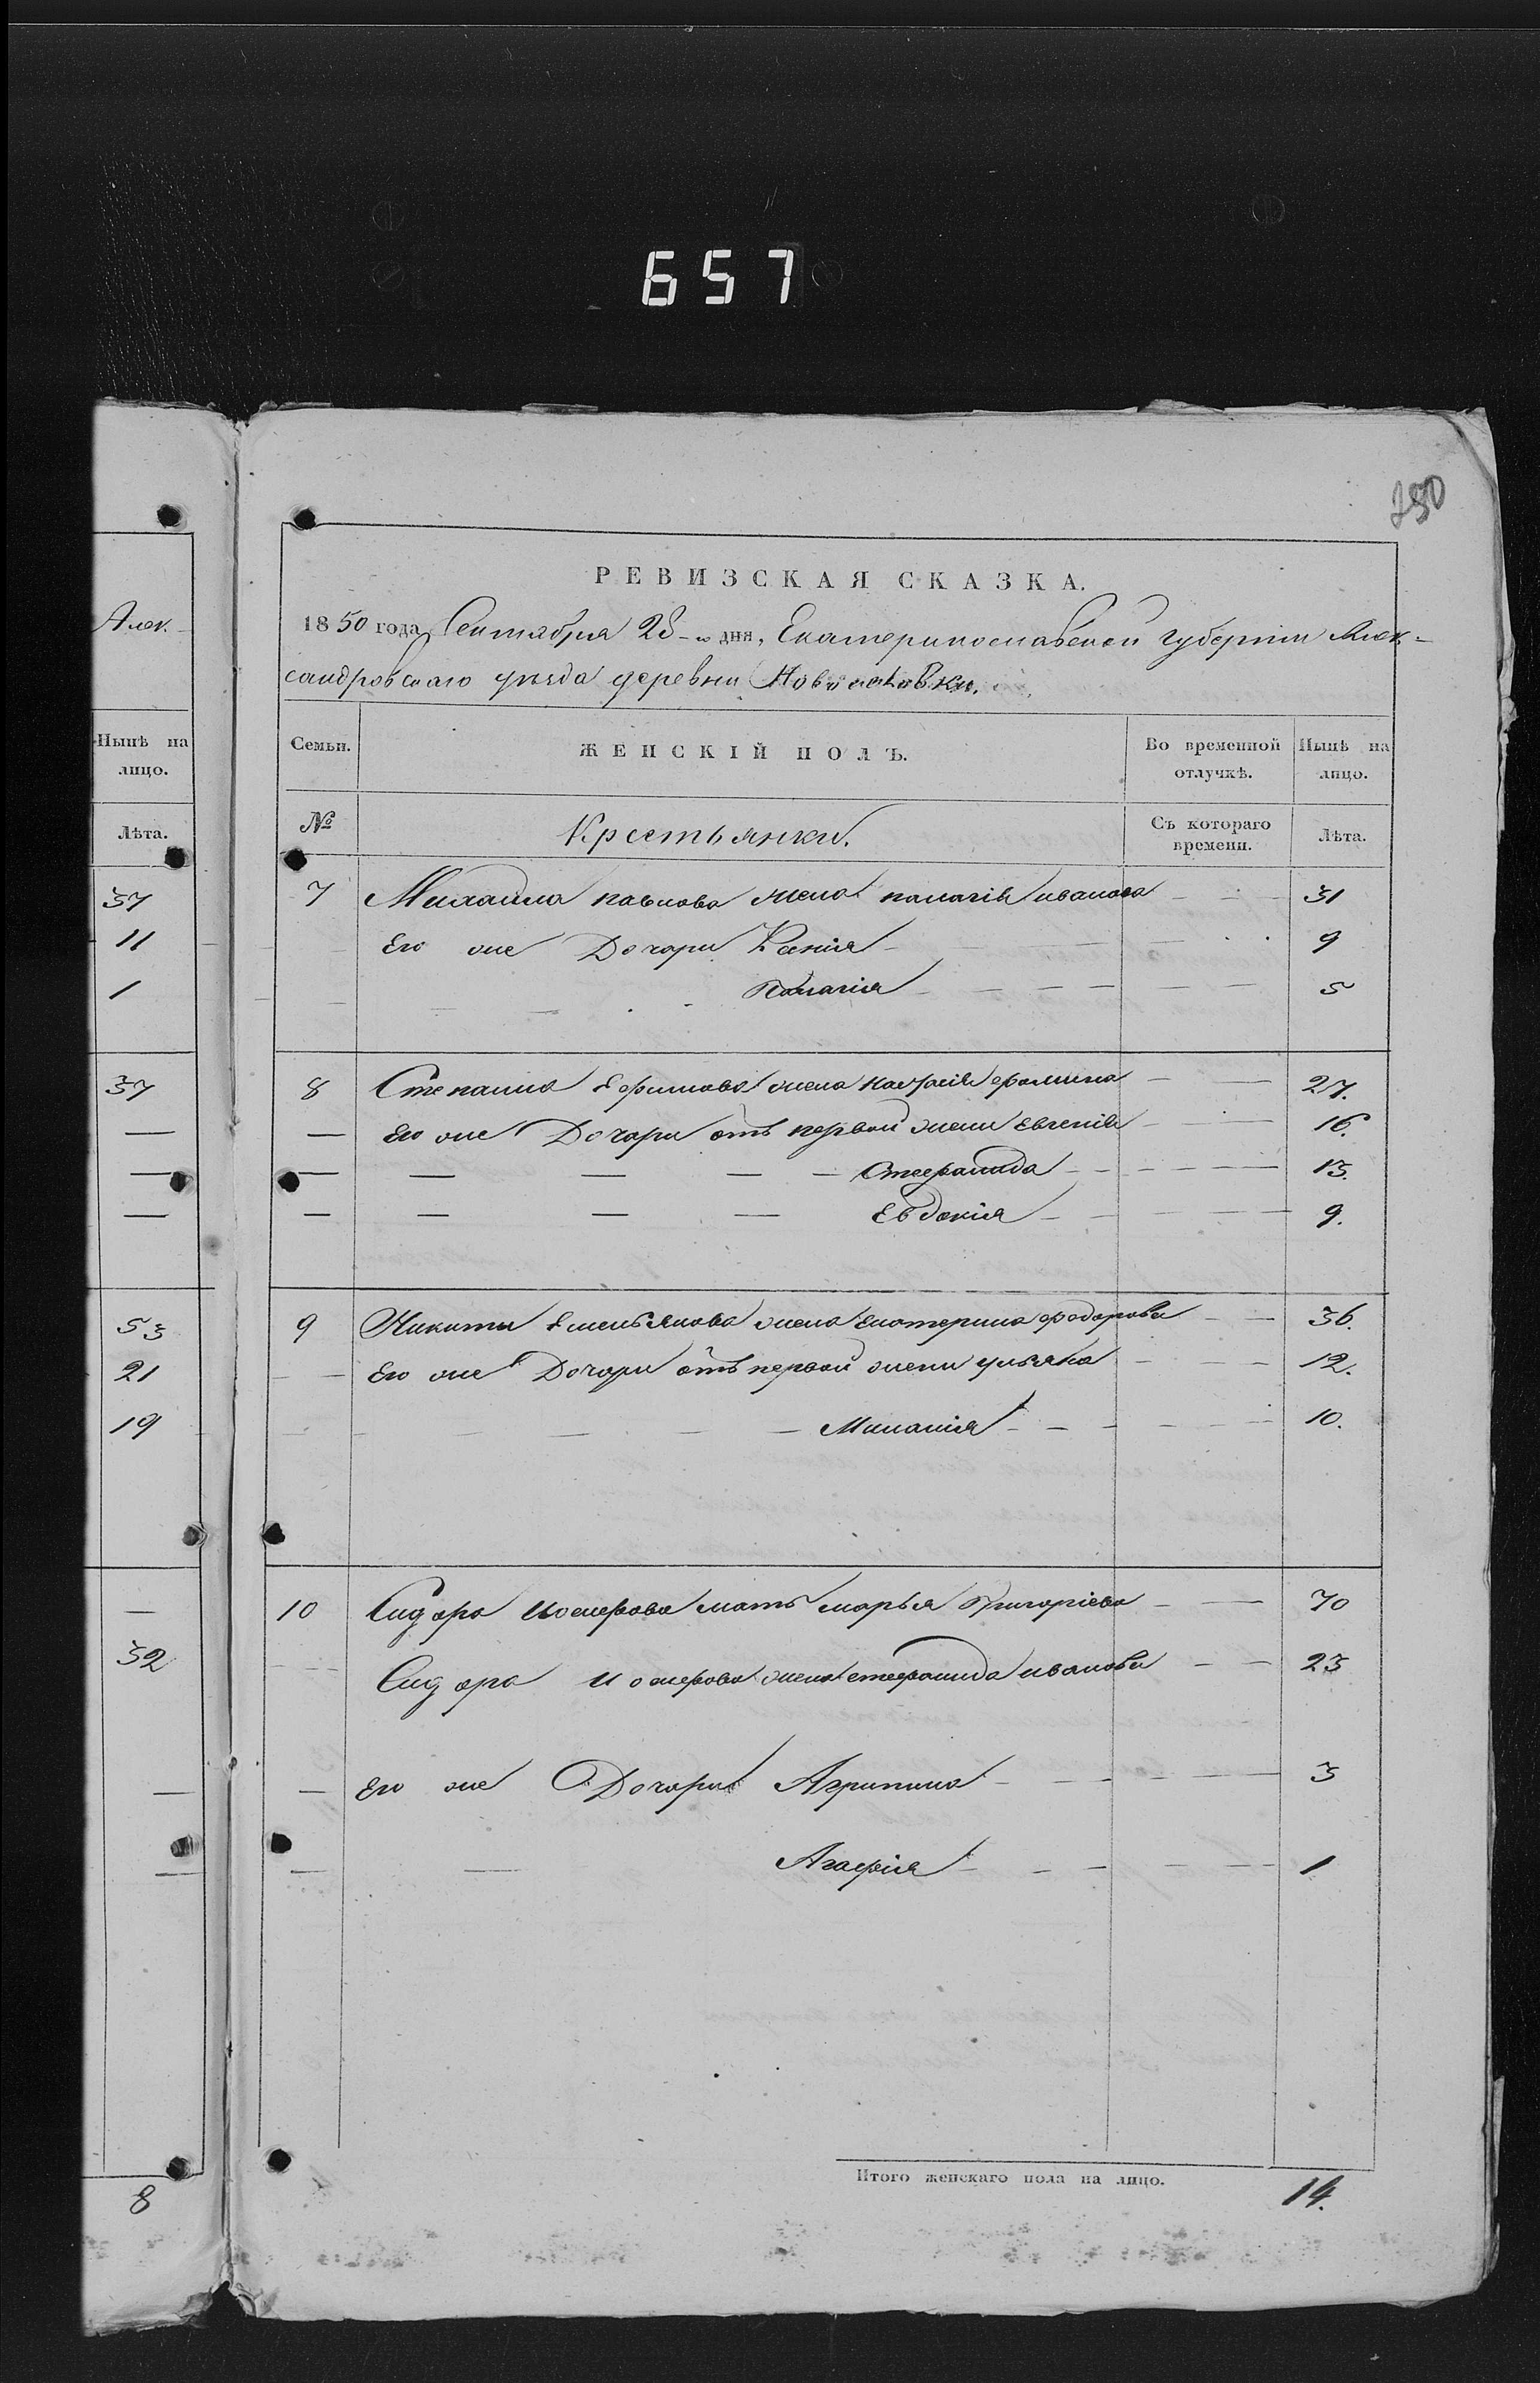 657
250
РЕВИЗСКАЯ СКАЗКА.
Алек-
1850 года Сентября 28-го дня, Екатеринославской губернии Алек-
сандровскаго уѣзда деревни
Нынѣ на лицо.
Лѣта.
Семьи.
ЖЕНСКІЙ ПОЛЪ.
Во временной отлучкѣ.
Нынѣ на лицо.
№
Крестьянки.
Съ котораго времени.
Лѣта.
37
11
1
37
53
21
19
32
8
7 Михайла павлова жена палагія иванова 31
Его же Дочери Ксенія 9
Палагія 5
8 Степана Ефимова жена настасія фомина 27.
Его же Дочери отъ первой жени Евгенія 16.
Стефанида 13.
Евдокія 9.
9 Никиты Емельянова жена екатерина федорова 36.
Его же Дочери отъ первой жени ульяна 12.
Миланія 10.
10 Сидора иосифова мать марья Григоріева 70
Сидора иосифова жена стефанида иванова 23
Его же Дочери Агрипина 3
Агафія 1
Итого женскаго пола на лицо. 14.